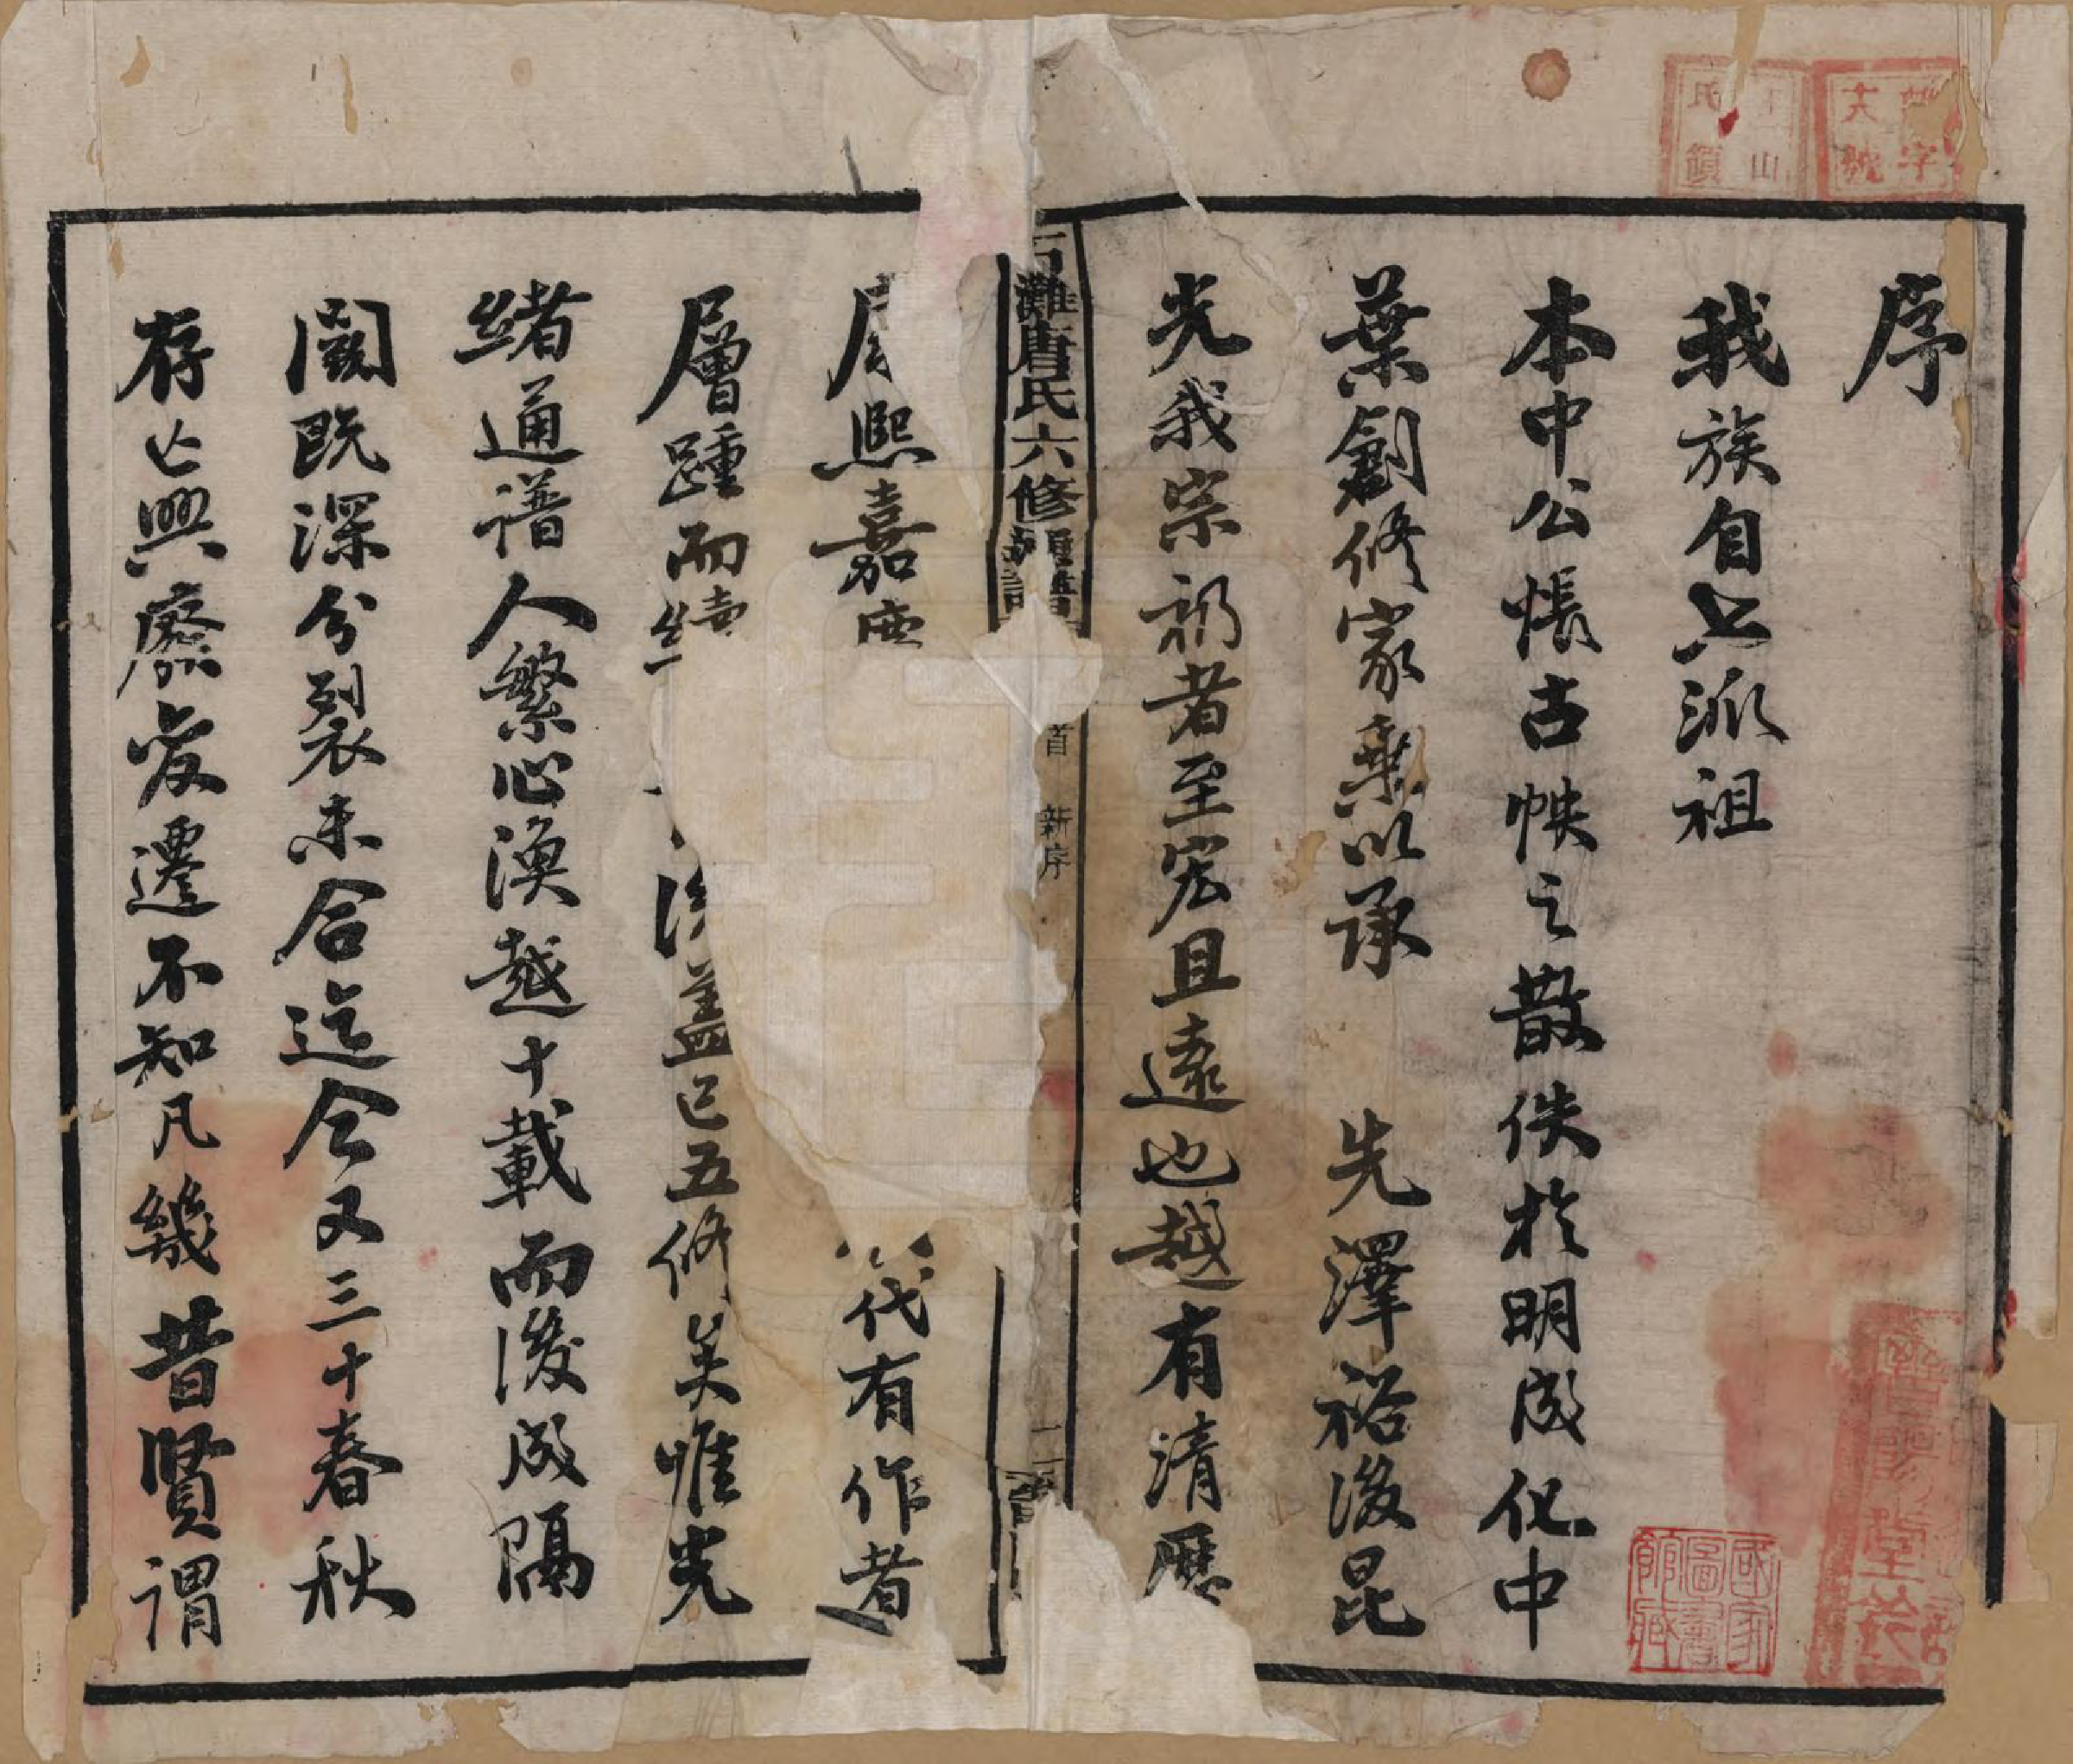 序
我族自上派祖
本中公悵古帙之散佚於明成化中
葉創修家乘以承 先澤裕後昆
光我宗祊者至宏且遠也越有清歷
石灘唐氏六修譜
首 新序 一
熙嘉 代有作者
層踵而續 蓋已五修矣惟光
緒通譜人繁心渙越十載而後成隔
閡既深分裂未合迄今又三十春秋
存亡興廢變遷不知凡幾昔賢謂
國家圖書館藏
晉陽堂
字
號
山
氏
鎮